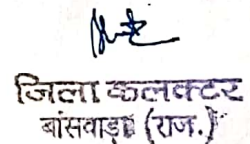 जिला कलक्टर
बांसवाड़ा (राज.)